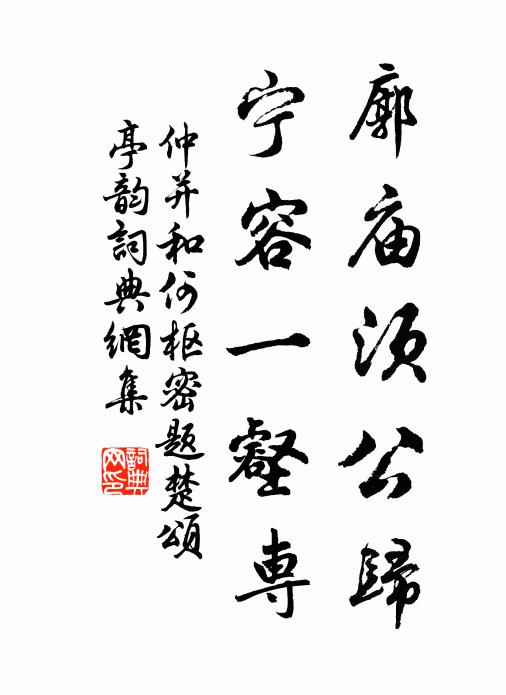 廓庙须公歸
宁容一壑専
仲并和何枢密题楚頌
亭韵詞典網集
詞典网印